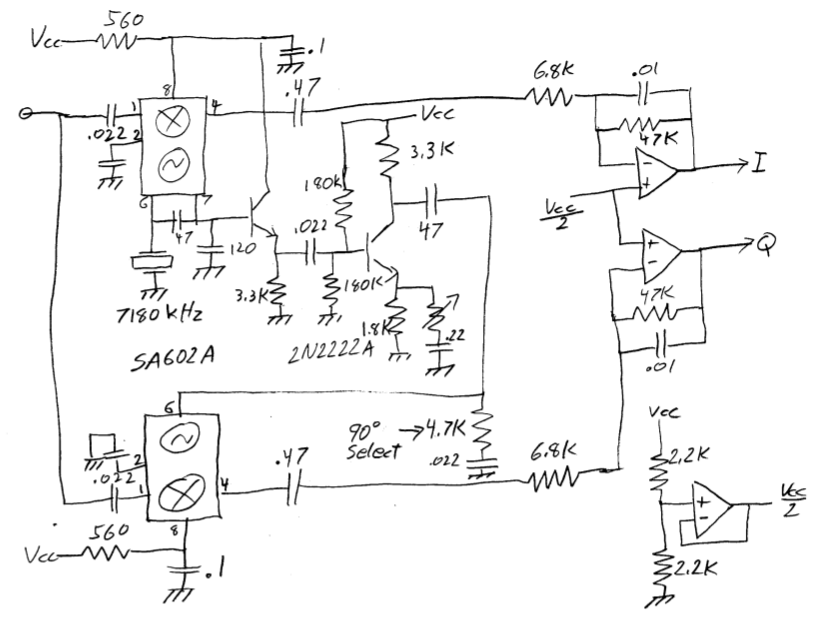 560
Vcc
.1
8
.47
1
4
.022
2
6
7
47
120
7180 kHz
SA602A
Vcc
3.3K
180K
.022
47
3.3K
180K
1.8K
.22
2N2222A
6.8K
.01
47K
-
+
I
Vcc
2
+
-
Q
47K
.01
6
2
.022
1
4
8
.47
90° → 4.7K
Select
.022
6.8K
560
Vcc
.1
Vcc
2.2K
+
-
Vcc
2
2.2K